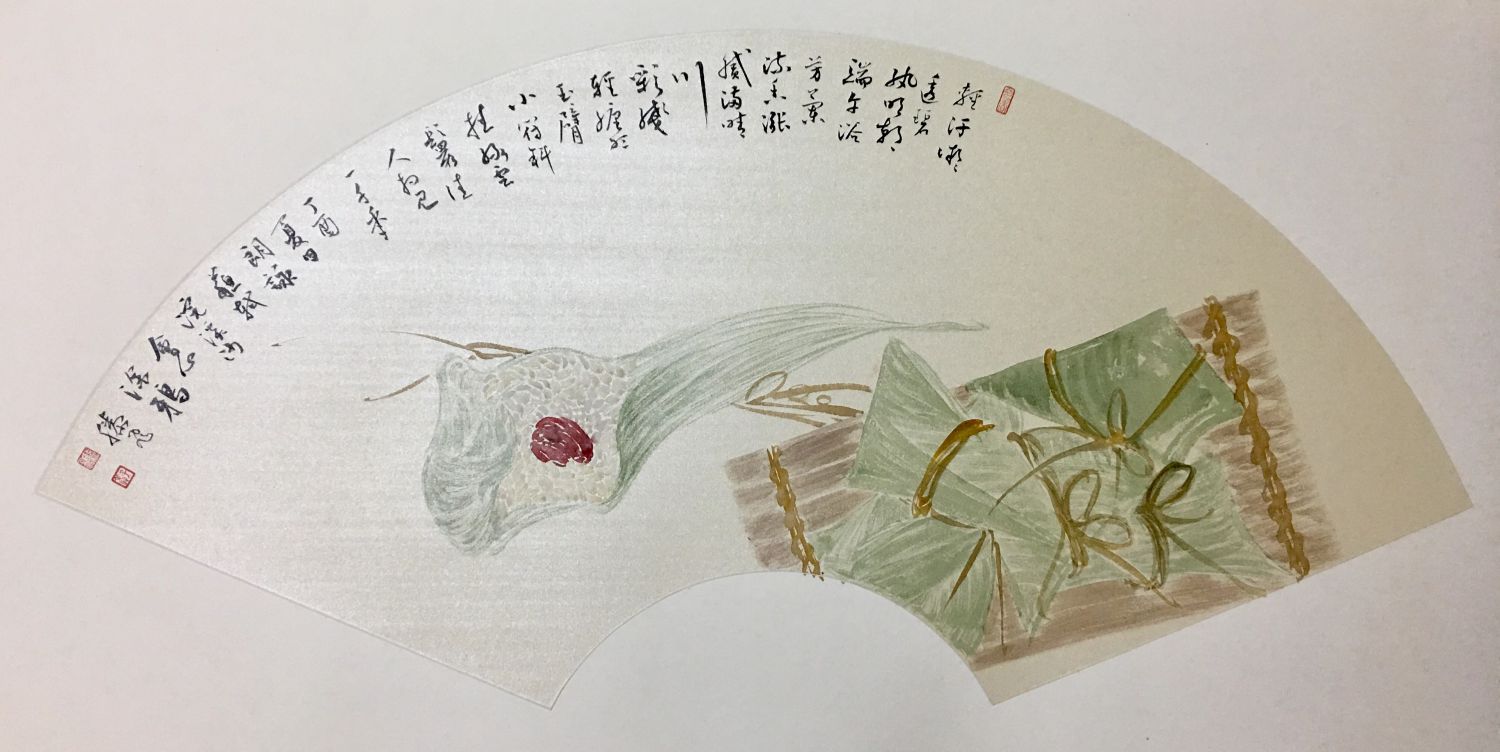 輕汗微微
透碧
紈明朝
端午浴
芳蘭
流香漲
膩滿晴
川
彩綫
輕纏紅
玉臂
小符斜
挂綠雲
鬟佳
人相見
一千年
丁酉
夏日
朗詠
蘇軾
浣溪沙
會心